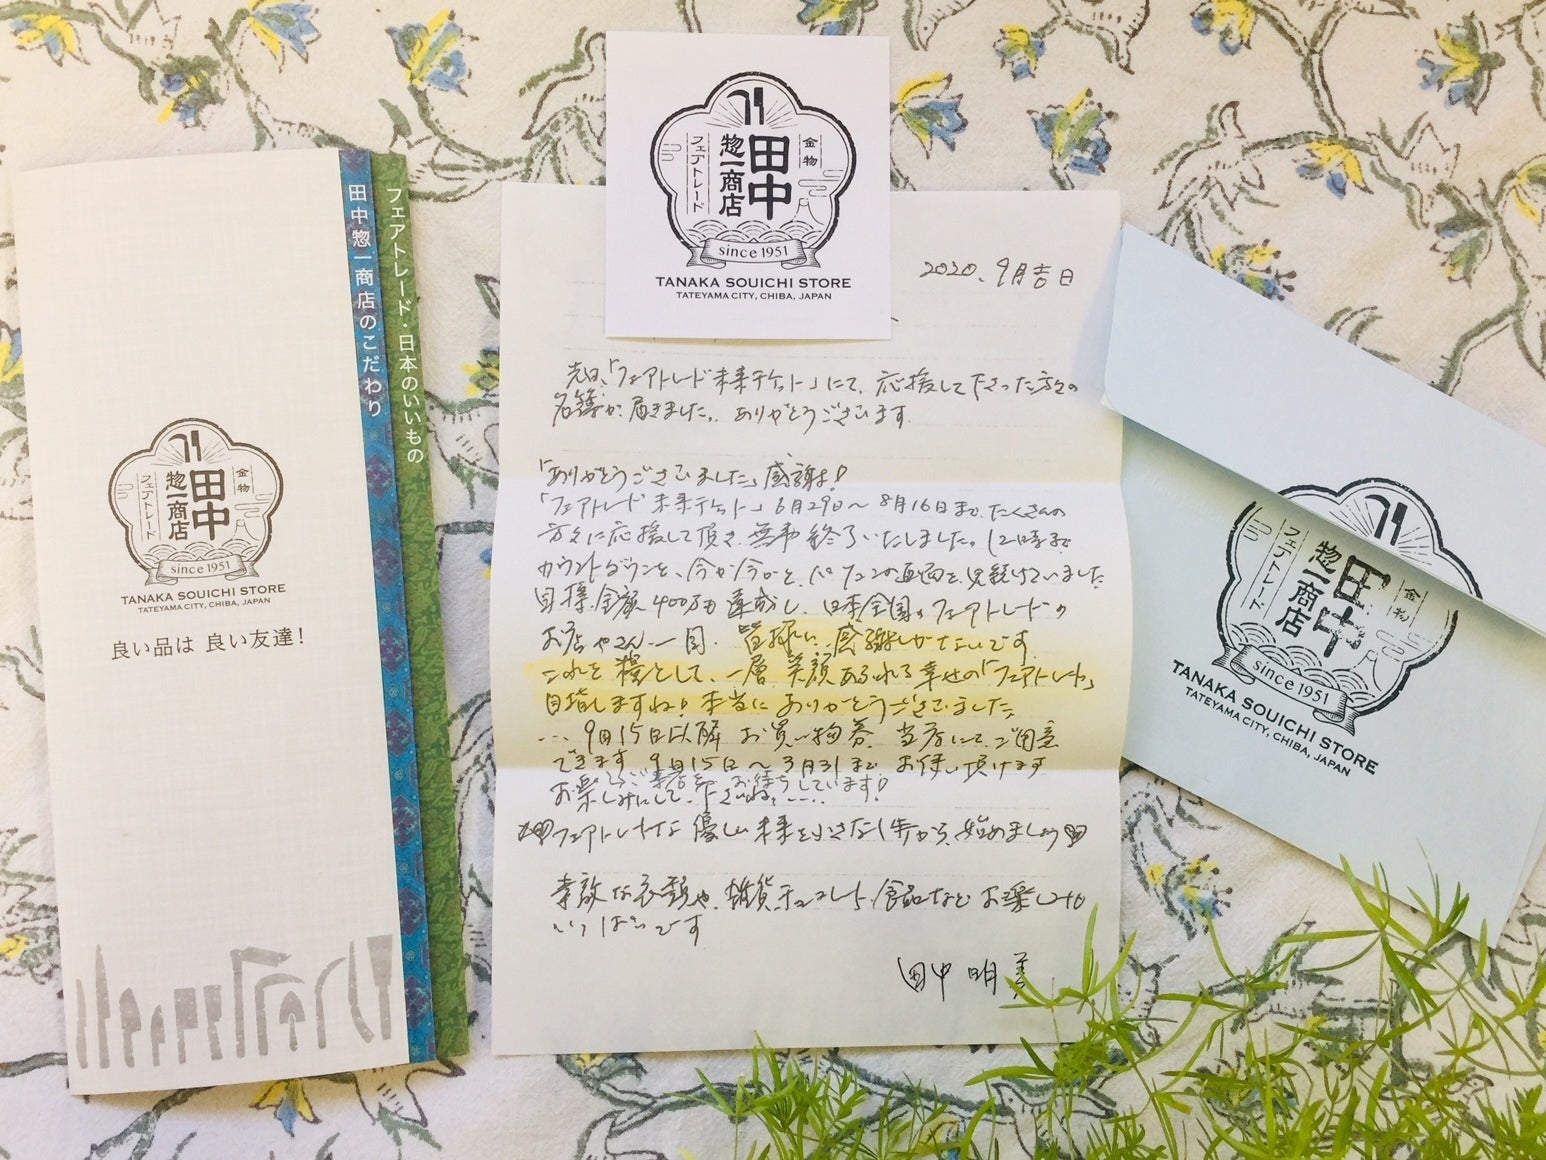 フェアトレード・日本のいいもの
田中惣一商店のこだわり
金物
田中
惣一商店
フェアトレード
since 1951
TANAKA SOUICHI STORE
TATEYAMA CITY, CHIBA, JAPAN
良い品は 良い友達！
金物
田中
惣一商店
フェアトレード
since 1951
TANAKA SOUICHI STORE
TATEYAMA CITY, CHIBA, JAPAN
2020. 9月吉日
先日、「フェアトレード未来チケット」にて、応援して下さった方々の
名簿が届きました。ありがとうございます。
「ありがとうございました」感謝を！
「フェアトレード未来チケット」6月29日〜8月16日まで、たくさんの
方々に応援して頂き、無事終了いたしました。12時まで
カウントダウンを、今か今かと、パソコンの画面を見続けていました
目標金額400万も達成し、日本全国のフェアトレードの
お店やさん一同、皆様に感謝しかないです。
これを糧として、一層笑顔あふれる幸せの「フェアトレード」
目指しますね！本当にありがとうございました。
... 9月15日以降お買い物券、当店にてご用意
できます。9月15日〜3月31までお使い頂けます
ご来店をお待ちしています！
お楽しみにして下さいね。.....
フェアトレードな優しい未来を小さな1歩から、始めましょう
素敵な衣類や、雑貨チョコレート、食品などお楽しみ
いっぱいです
田中 明美
金物
田中
惣一商店
フェアトレード
since 1951
TANAKA SOUICHI STORE
TATEYAMA CITY, CHIBA, JAPAN